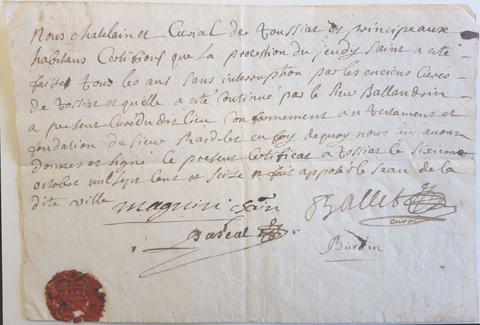 Nous Chatelain et Curial de Toussiat et principeaux
habitans Certifions que la procession du jeudy Saint a esté
faitte tous les ans sans interruption par les enciens Cures
de Tossiat et quelle a eté continue par le Sieur Ballandrin
a present Curé du dit lieu conformement au testament et
fondation du Sieur en foy de quoy nous en avons
donnes et signé Ce present Certificat a Tossiat le Sixieme
octobre mil sept cent et seize et fait apposé le Seau de la
dite ville
Magnin
Ballet
curial
Pascal
Burdin